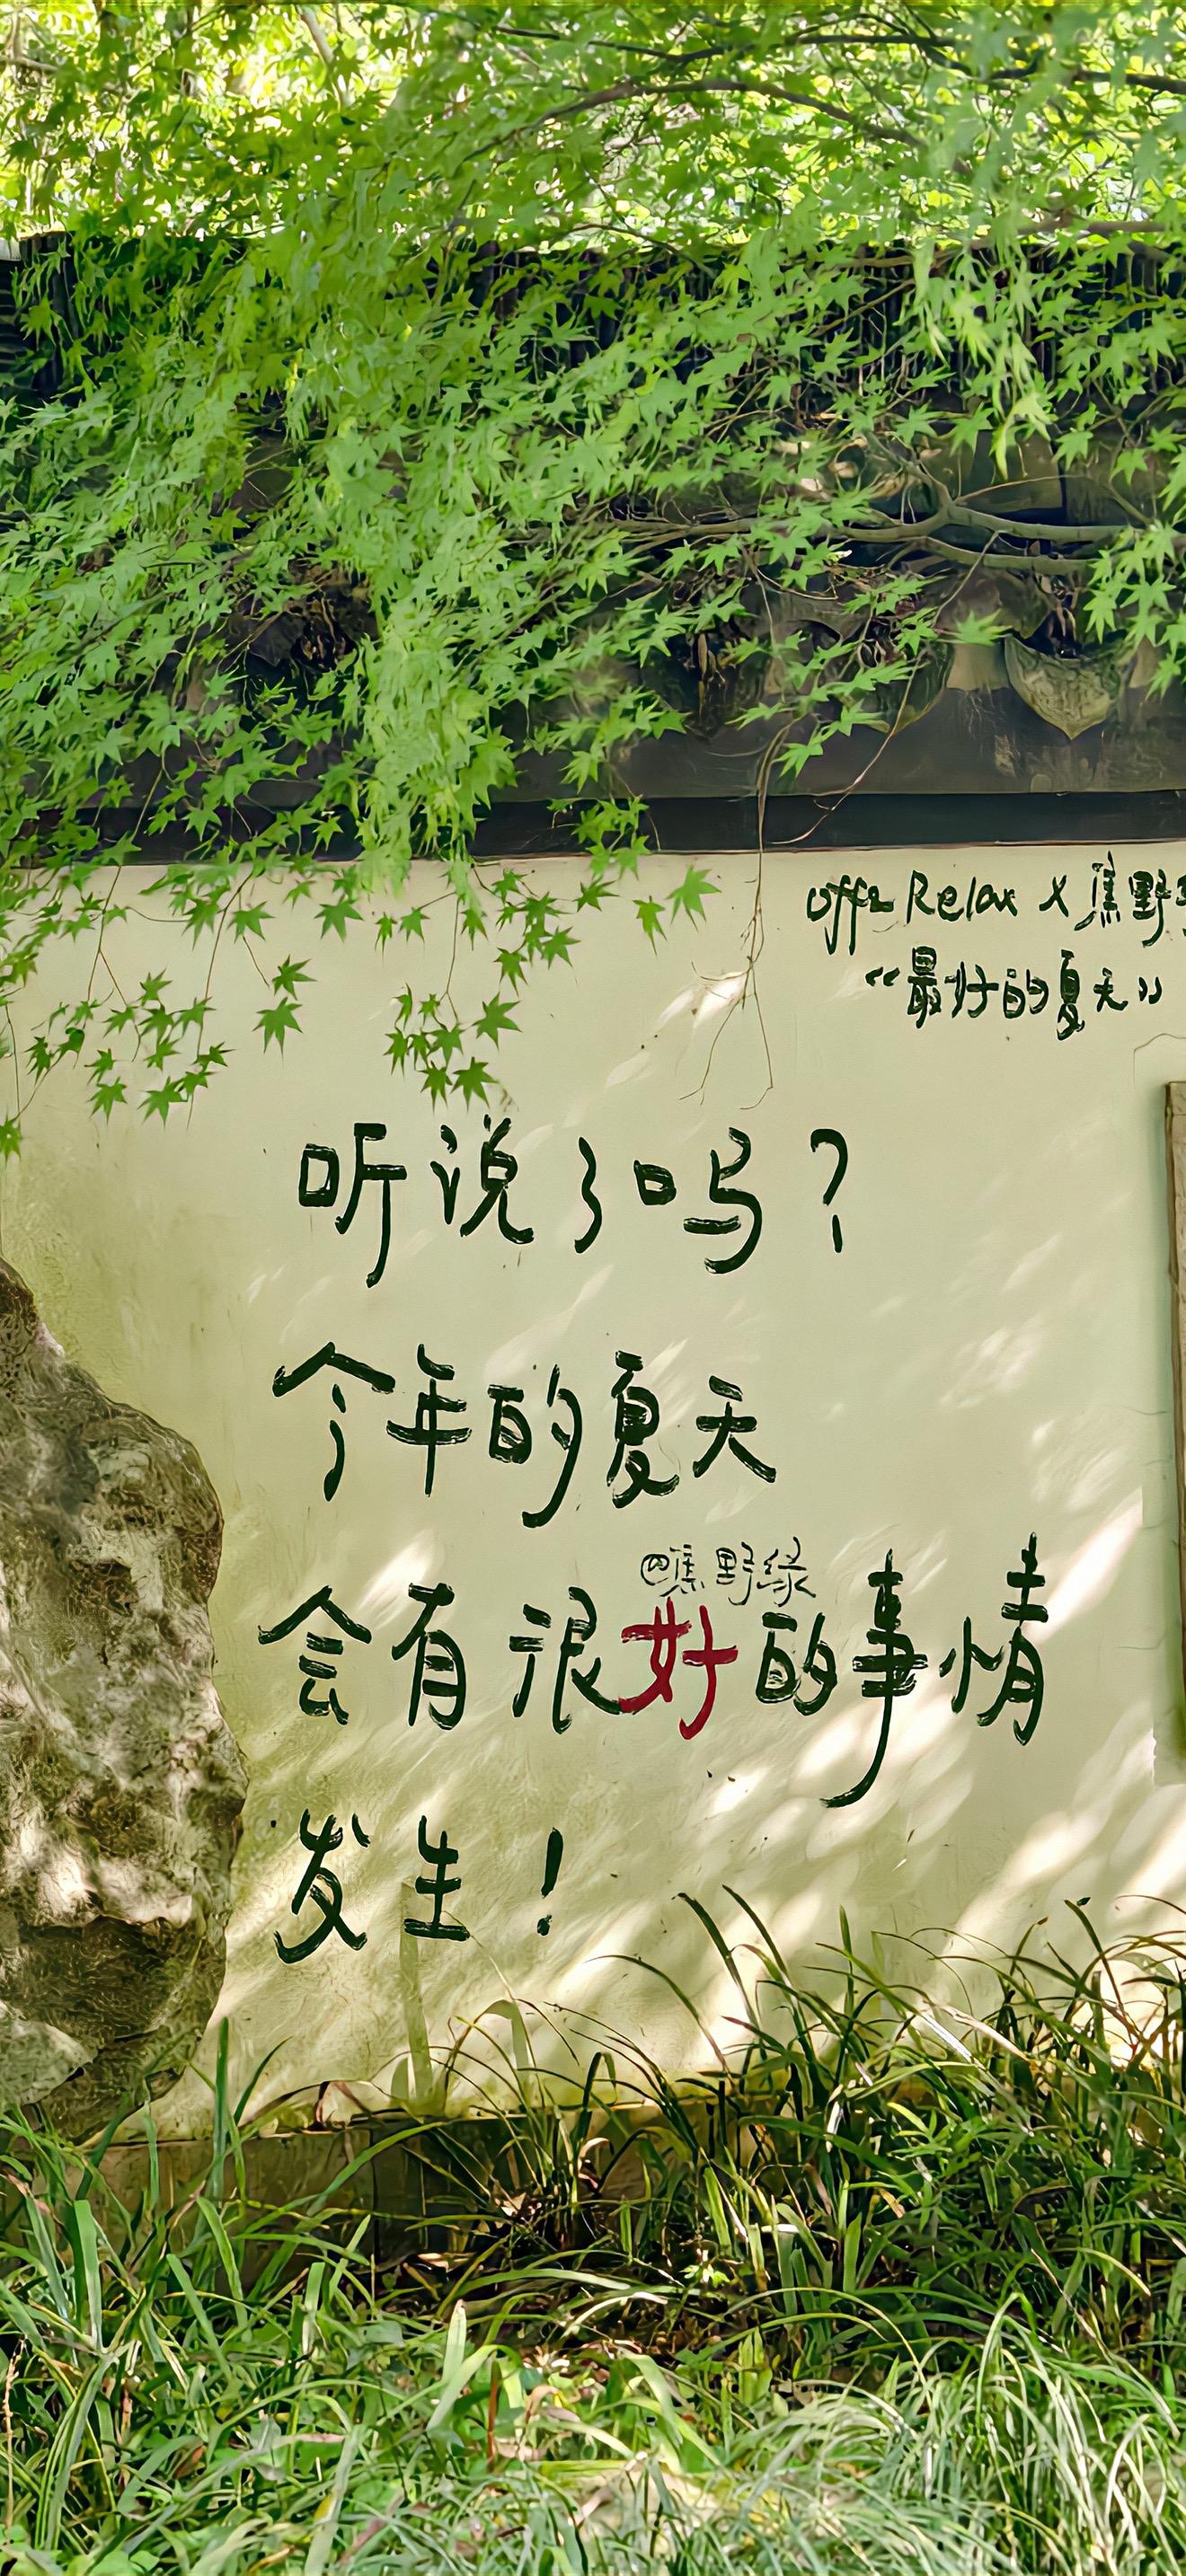 Offer Relax X 蕉野
“最好的夏天”
听说了吗？
今年的夏天
@蕉野绿
会有很好的事情
发生！